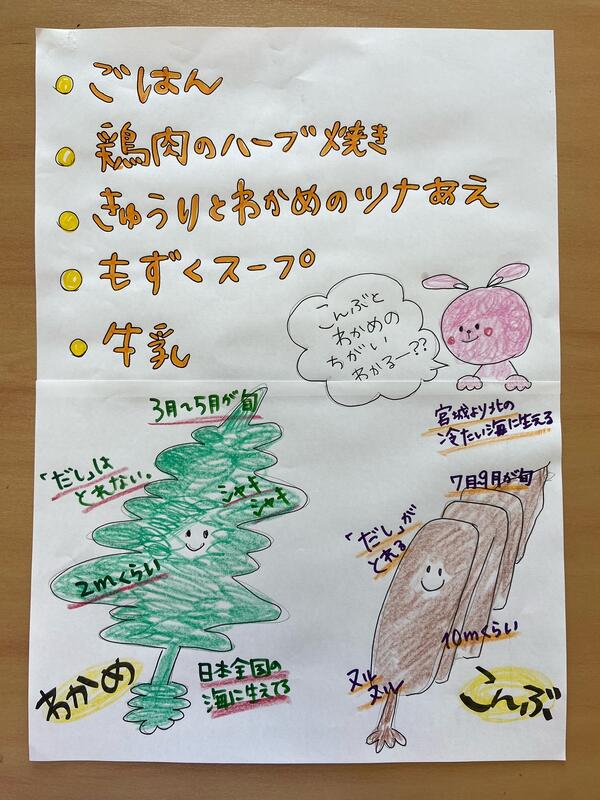 ごはん
鶏肉のハーブ焼き
きゅうりとわかめのツナあえ
もずくスープ
牛乳
こんぶと
わかめの
ちがい
わかるー??
3月〜5月が旬
「だし」は
とれない。
シャキ
シャキ
2mくらい
日本全国の
海に生えてる
わかめ
宮城より北の
冷たい海に生える
7月9月が旬
「だし」が
とれる
10mくらい
ヌル
ヌル
こんぶ